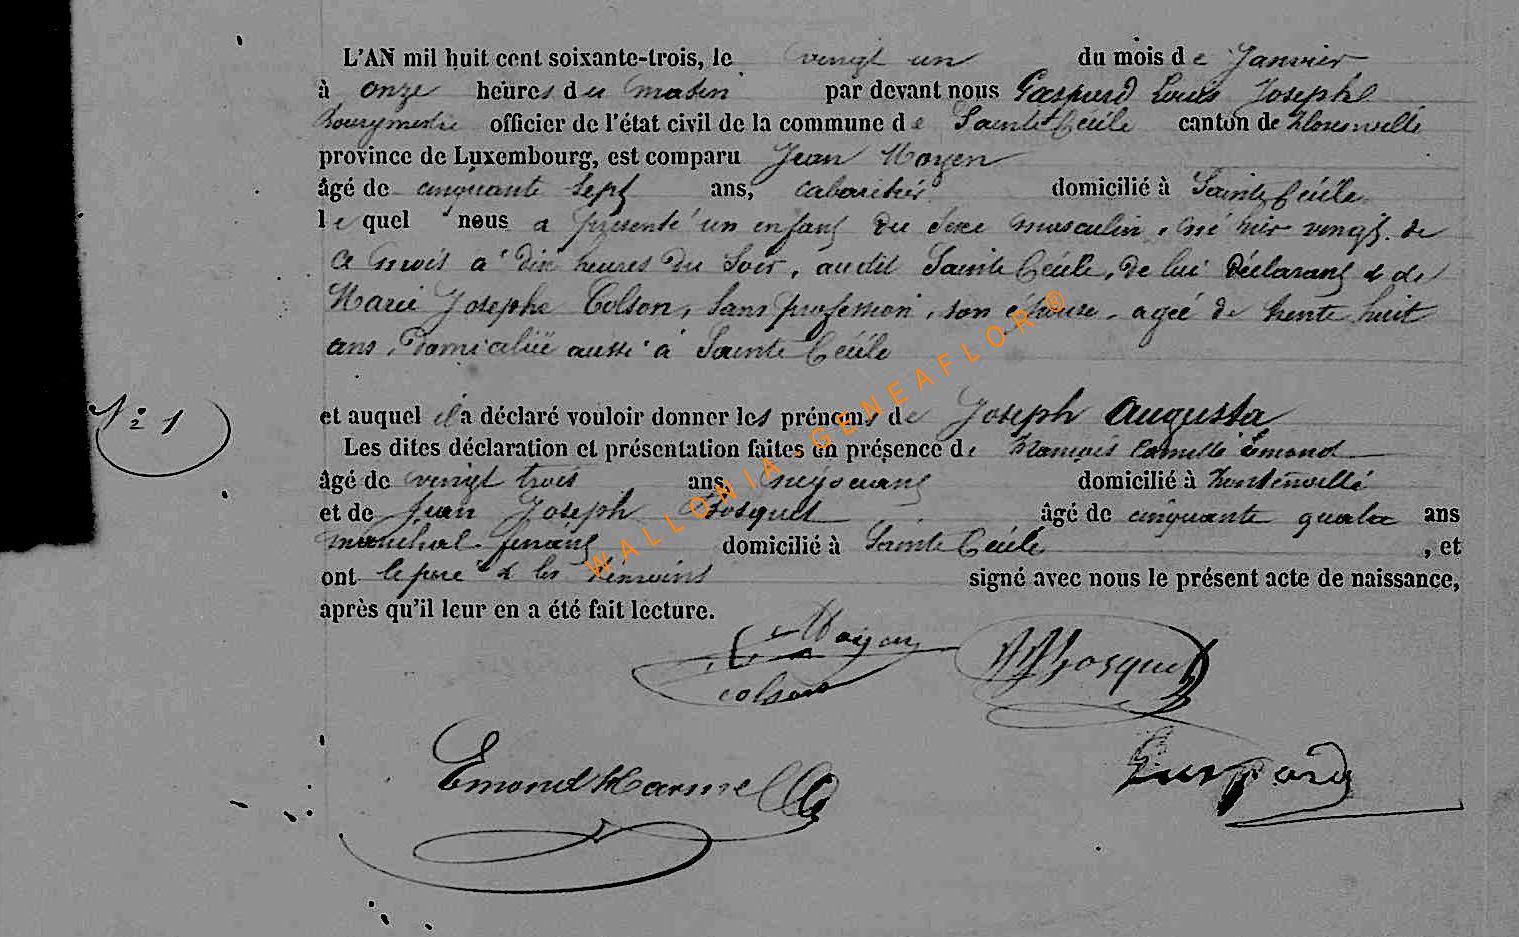 L'AN mil huit cent soixante-trois, le vingt un du mois de Janvier
à onze heures du matin par devant nous Gaspard Louis Joseph
Bourgmestre officier de l'état civil de la commune de Sainte Cécile canton de Florenville
province de Luxembourg, est comparu Jean Noyen
âgé de cinquante sept ans, cabaretier domicilié à Sainte Cécile
lequel nous a présenté un enfant du sexe masculin, né hier vingt de
ce mois à dix heures du soir, audit Sainte Cécile, de lui déclarant & de
Marie Josephe Colson, sans profession, son épouse, agée de trente huit
ans, domiciliée aussi à Sainte Cécile
et auquel il a déclaré vouloir donner les prénoms de Joseph Augusta
N° 1
Les dites déclaration et présentation faites en présence de François Camille Emond
âgé de vingt trois ans, négociant domicilié à
et de Jean Joseph Bosquet âgé de cinquante quatre ans
maréchal ferrant domicilié à Sainte Cécile, et
ont le père & les temoins signé avec nous le présent acte de naissance,
après qu'il leur en a été fait lecture.
Noyen Bosquet
colson
Emond
Gaspard
WALLONIA-GENEAFLOR®